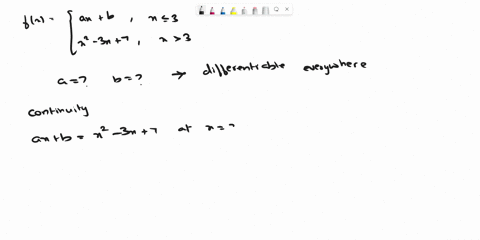 f(x) = { ax + b , x ≤ 3
x² - 3x + 7 , x > 3
a = ? b = ? → differentiable everywhere
continuity
ax + b = x² - 3x + 7 at x = ?